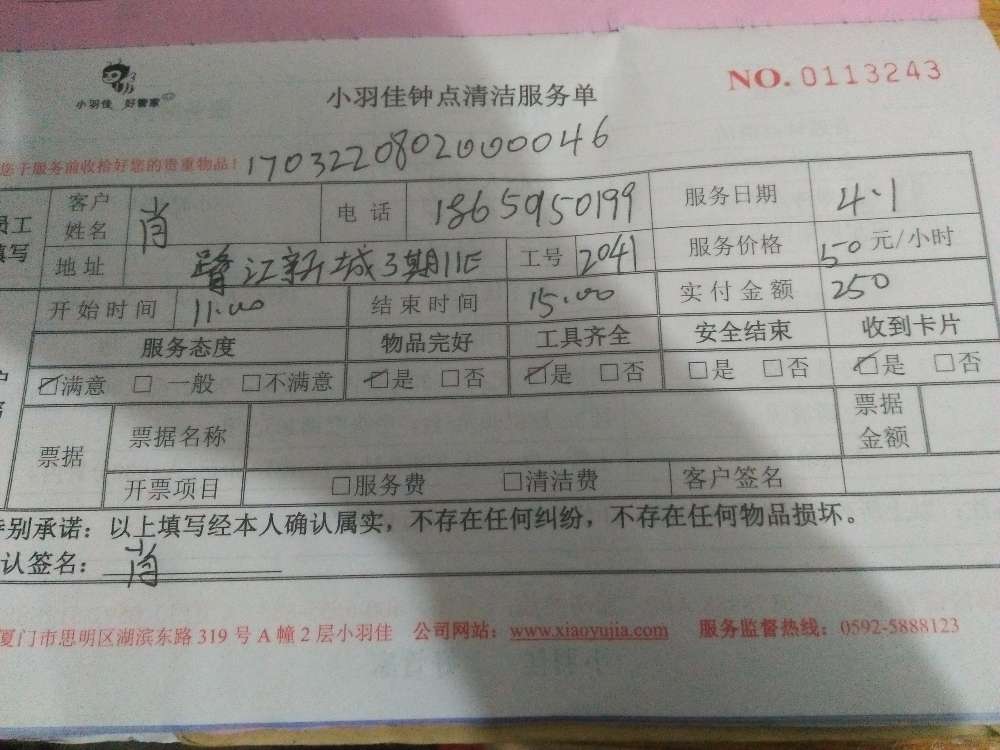 小羽佳 好管家
小羽佳钟点清洁服务单
NO. 0113243
您于服务前收拾好您的贵重物品!
170322080200046
员工填写
客户姓名 肖 电话 18659150199 服务日期 4.1
地址 鹭江新城3期11E 工号 2041 服务价格 50元/小时
开始时间 11:00 结束时间 15:00 实付金额 250
服务态度 物品完好 工具齐全 安全结束 收到卡片
☑满意 □一般 □不满意 ☑是 □否 ☑是 □否 □是 □否 ☑是 □否
票据 票据名称 票据金额
开票项目 □服务费 □清洁费 客户签名
特别承诺:以上填写经本人确认属实,不存在任何纠纷,不存在任何物品损坏。
认签名: 肖
厦门市思明区湖滨东路319号A幢2层小羽佳 公司网站:www.xiaoyujia.com 服务监督热线:0592-5888123